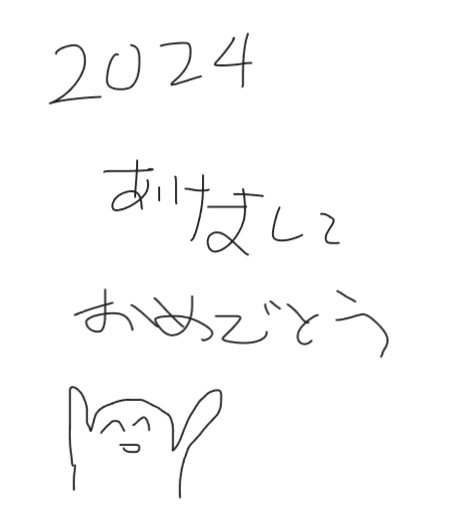 2024
あけまして
おめでとう